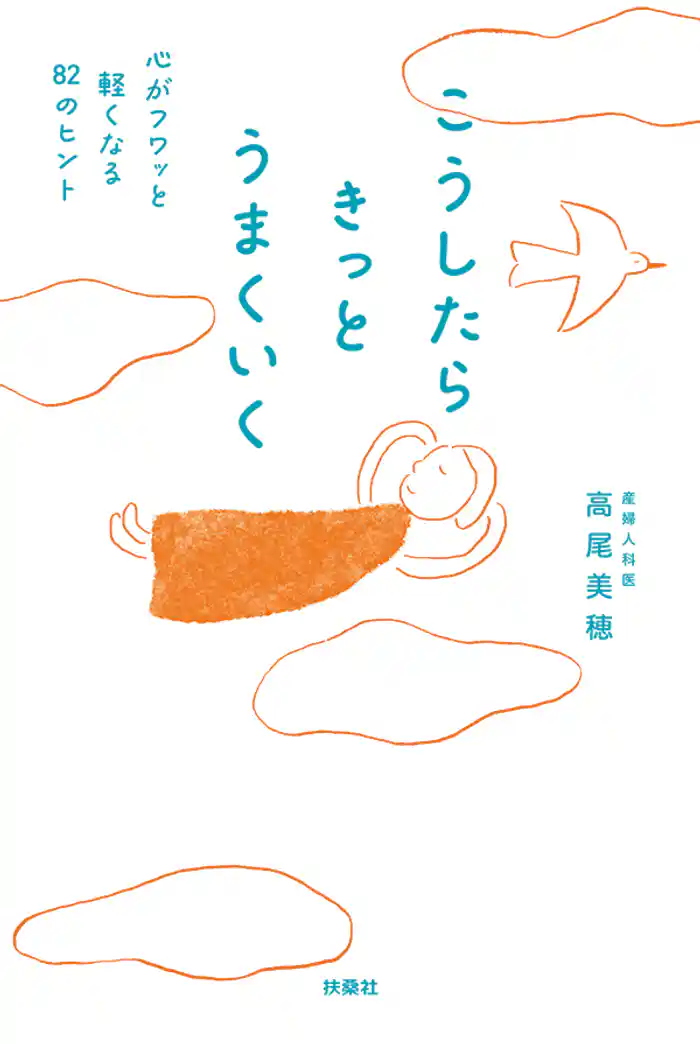 こうしたら
きっと
うまくいく
心がフワッと
軽くなる
82のヒント
産婦人科医
高尾美穂
扶桑社